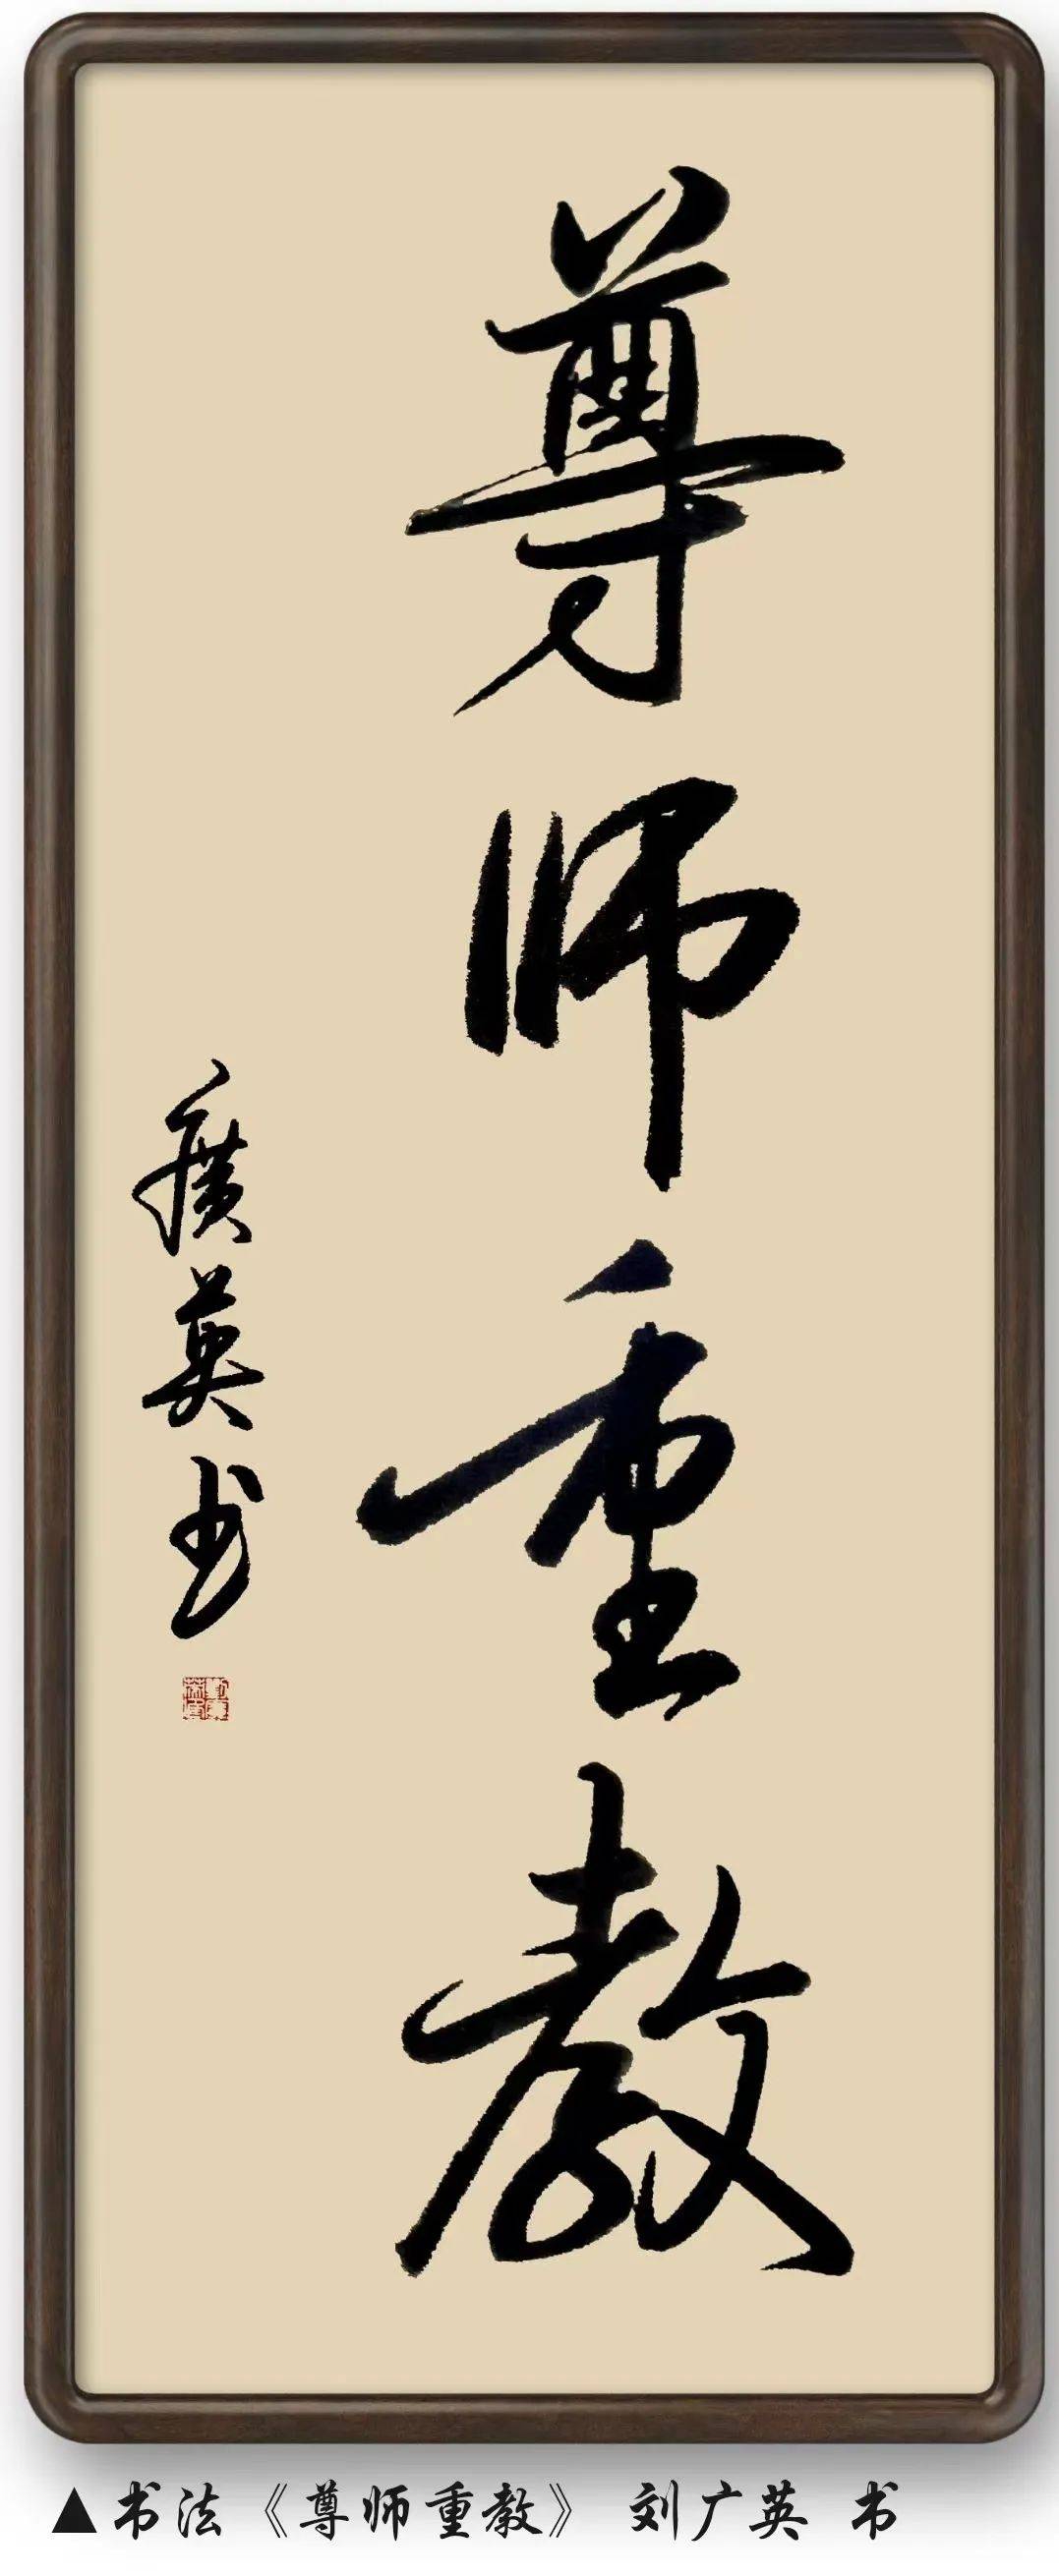 尊师重教
广英书
▲书法《尊师重教》 刘广英 书